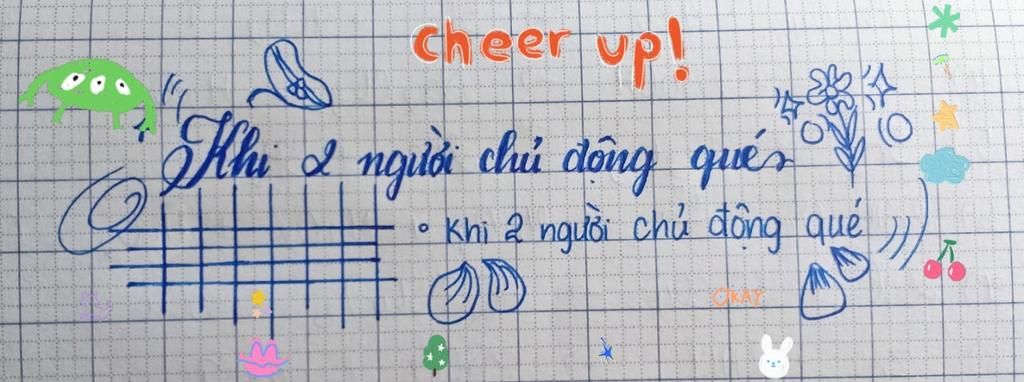 cheer up!
Khi 2 người chủ động qué
• Khi 2 người chủ động qué
OKAY